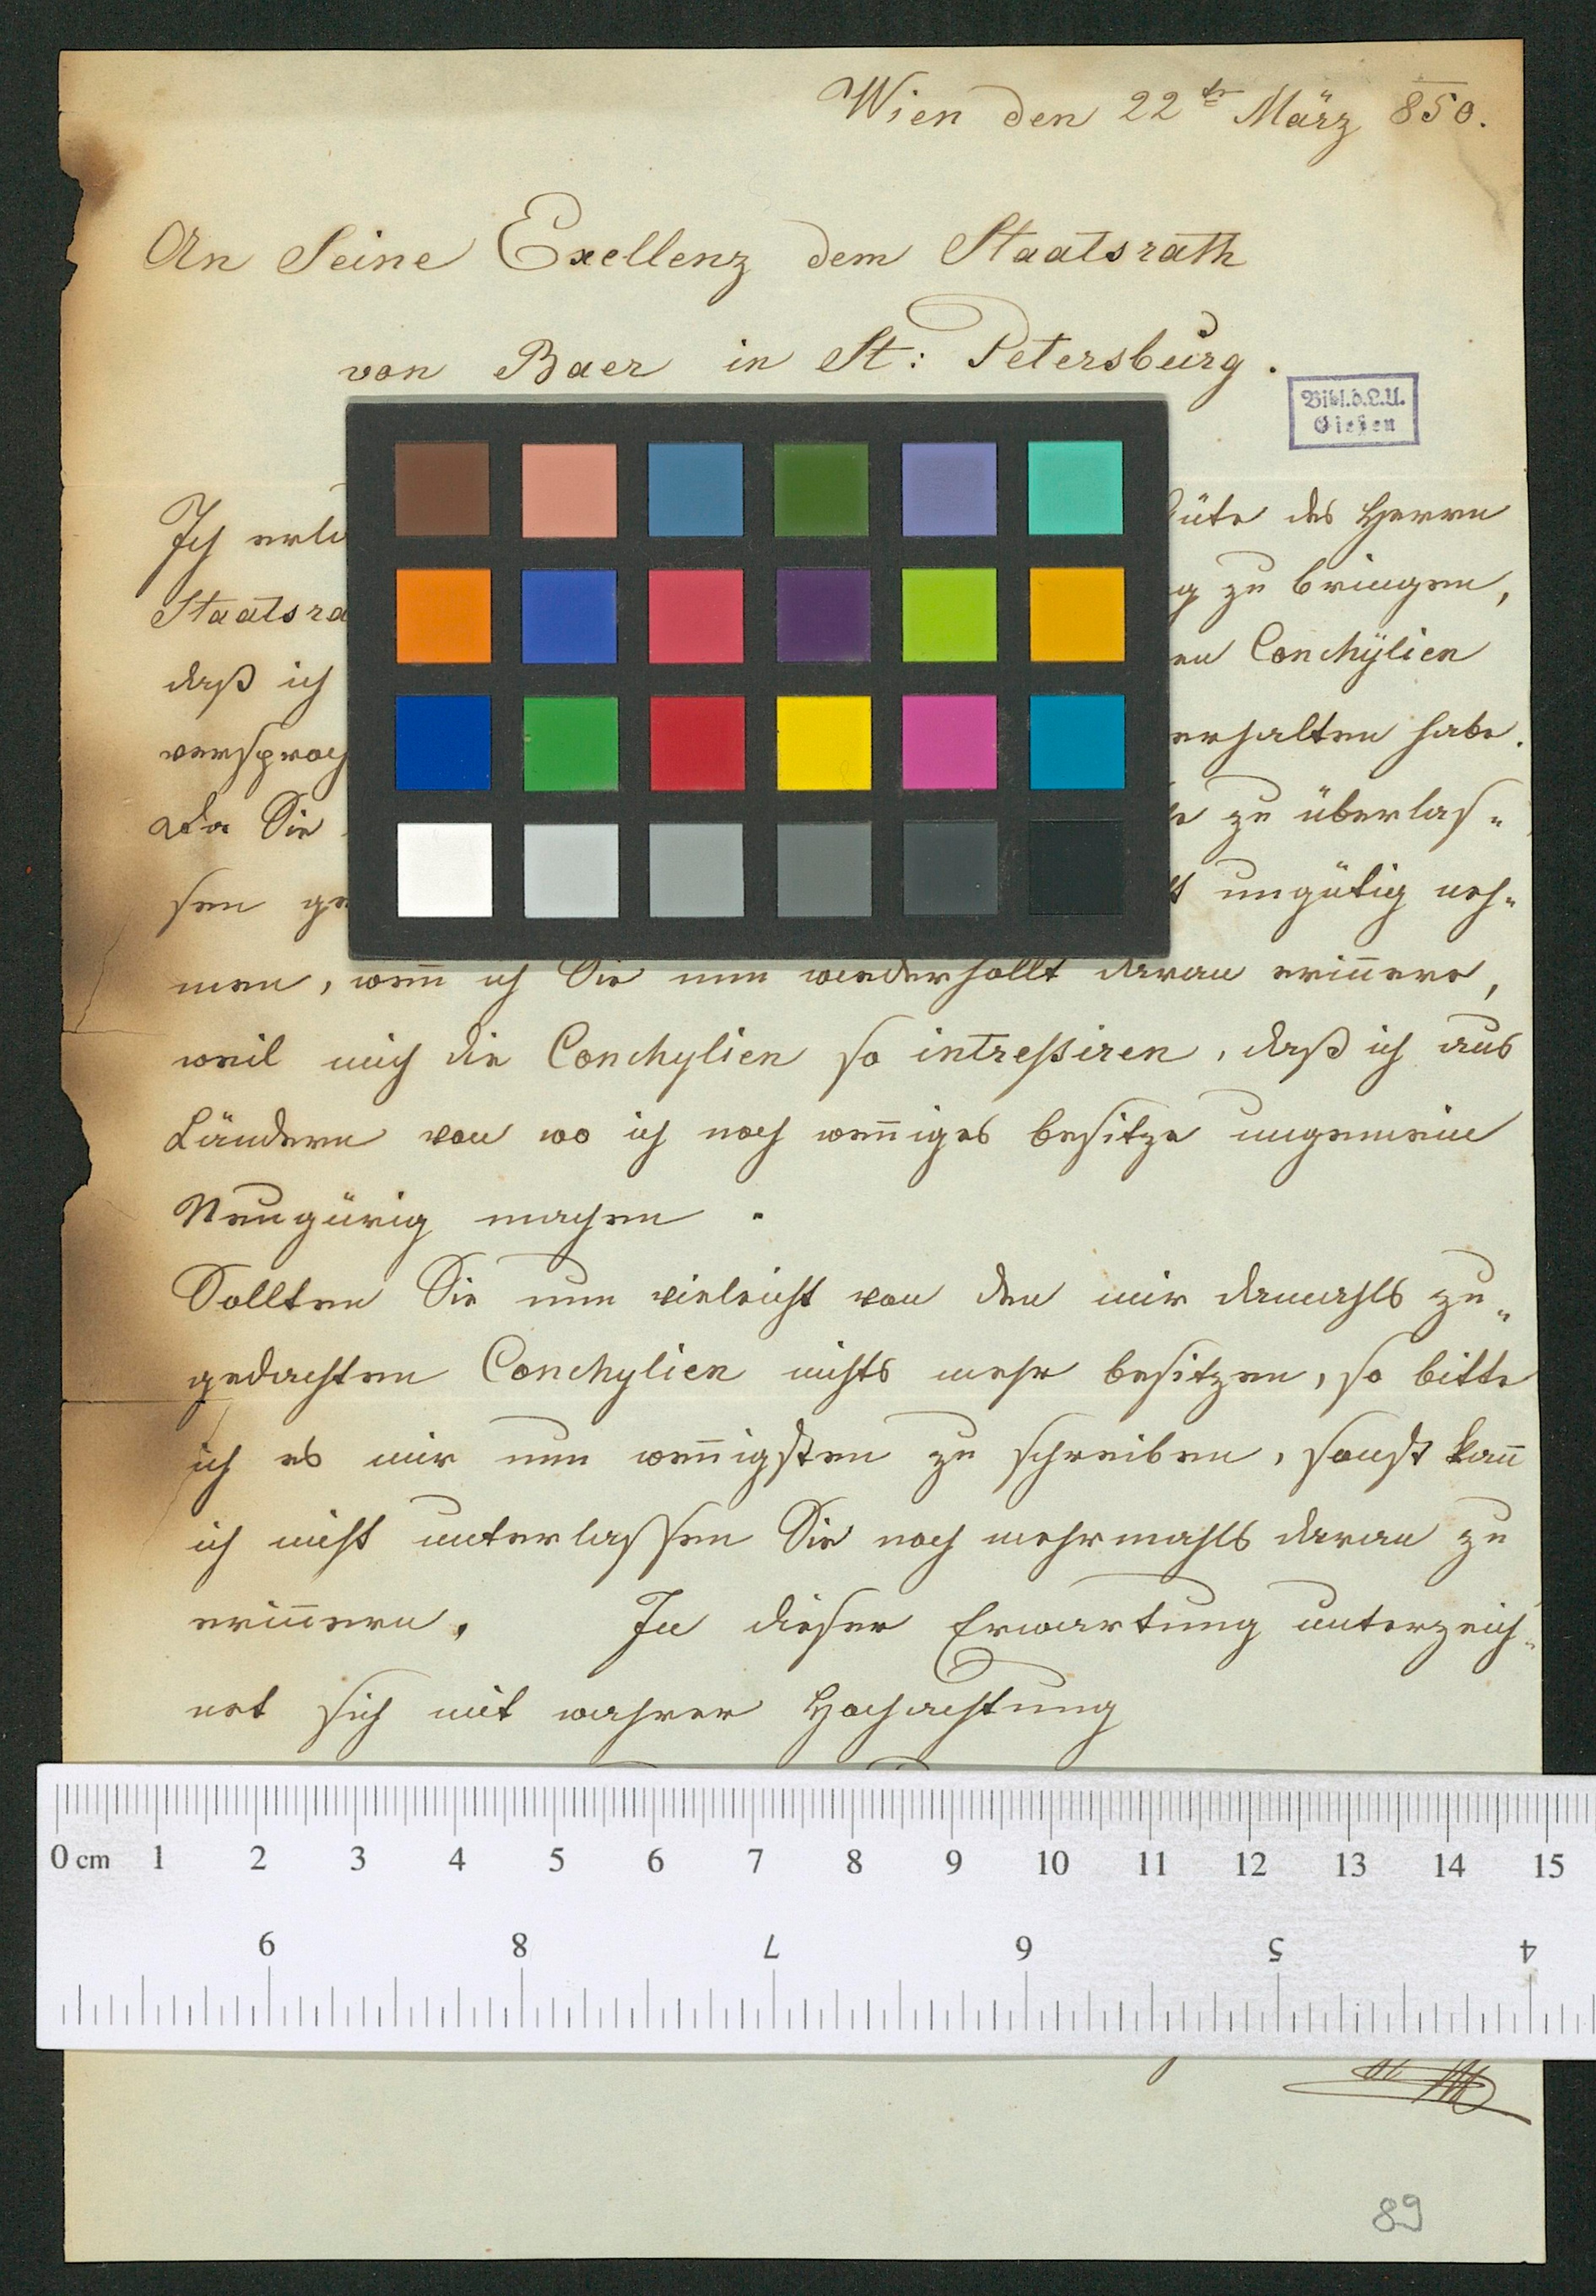 Wien den 22te März 850.
An Seine Exellenz dem Staatsrath
von Baer in St: Petersburg.
Bibl.d.L.U.
Gießen
Ich des Herrn
zu bringen,
daß ich Conchÿlien
erhalten habe.
Da Sie zu überlas-
sen ungütig neh-
men, wenn ich Sie nun wiederhollt daran erinnere,
weil mich die Conchylien so intreßiren, daß ich aus
Ländern von wo ich noch weniges besitze ungemein
Neugürig machen.
Sollten Sie nun vieleicht von den mir damahls zu-
gedachten Conchylien nichts mehr besitzen, so bitte
ich es mir nun wenigsten zu schreiben, sonst kann
ich nicht unterlassen Sie noch mehrmahls daran zu
erinnern. In dieser Erwartung unterzeich-
net sich mit wahrer Hochachtung
0 cm 1 2 3 4 5 6 7 8 9 10 11 12 13 14 15
9 8 7 6 5 4
89